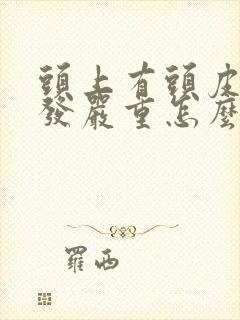 頭上有頭皮
發嚴重怎麼
羅西